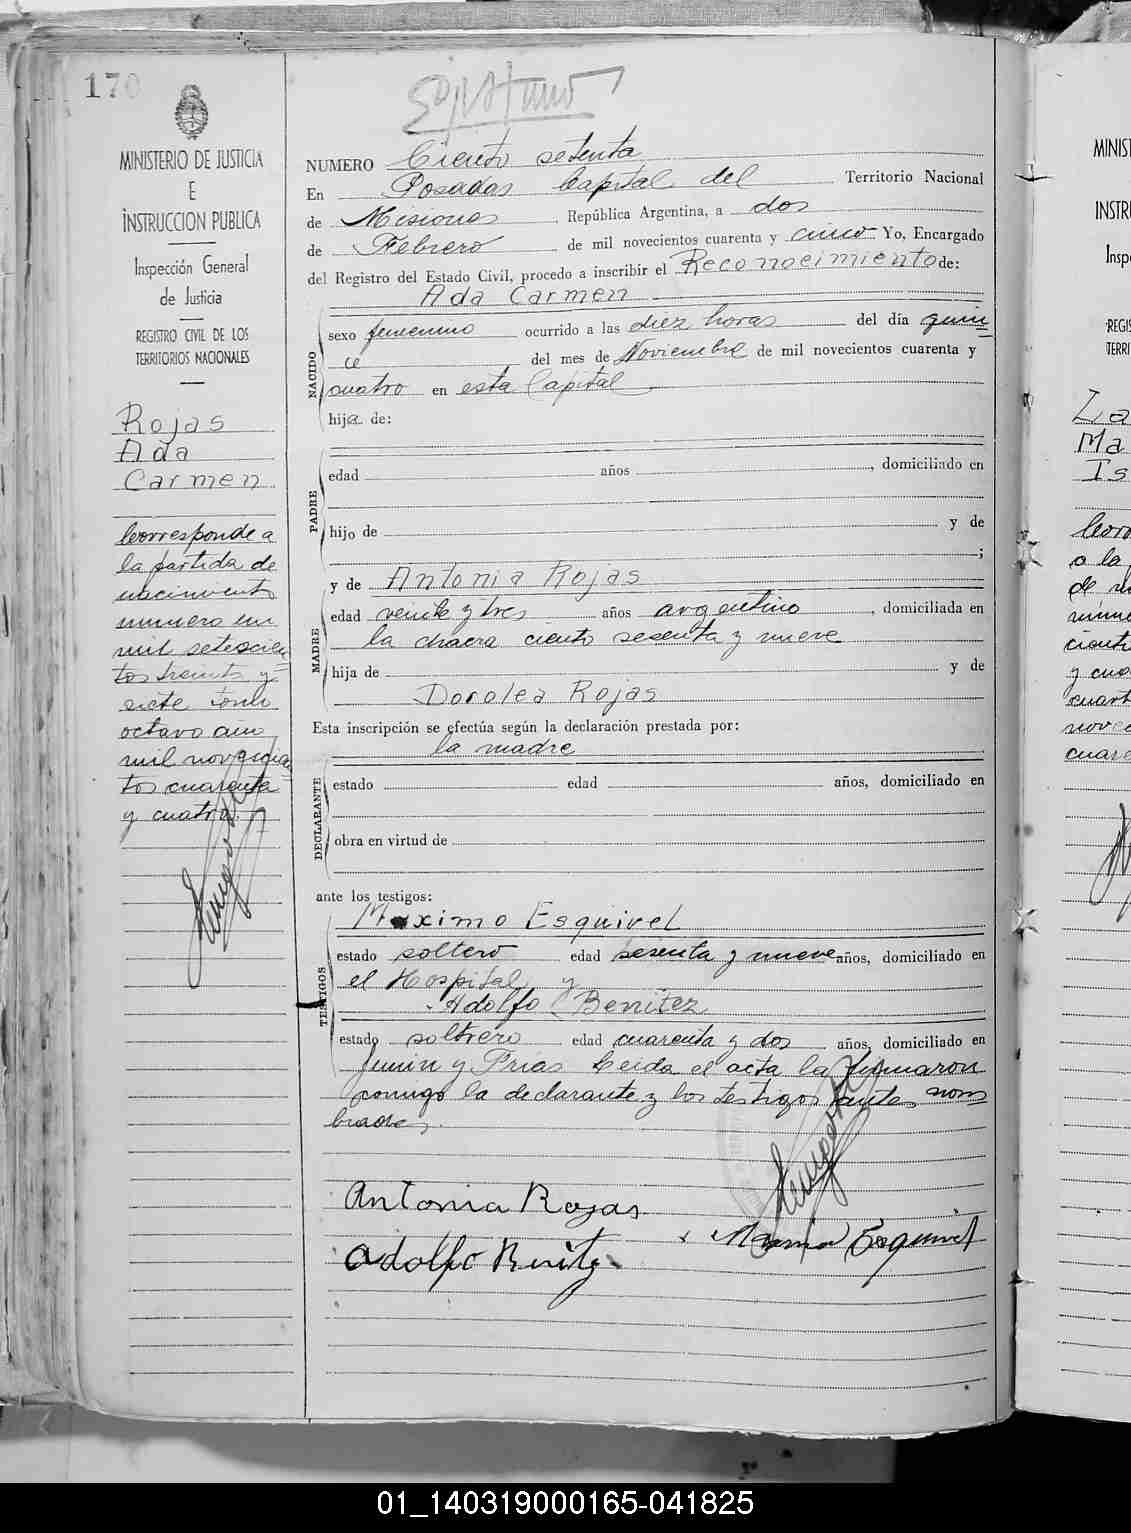 170
MINISTERIO DE JUSTICIA
E
INSTRUCCION PUBLICA
Inspección General
de Justicia
REGISTRO CIVIL DE LOS
TERRITORIOS NACIONALES
Rojas
Ada
Carmen
Corresponde a
la partida de
nacimiento
numero un
mil setecien
tos treinta y
siete tomo
octavo año
mil novecien
tos cuarenta
y cuatro.
NUMERO Ciento setenta
En Posadas Capital del Territorio Nacional
de Misiones, República Argentina, a dos
de Febrero de mil novecientos cuarenta y cinco Yo, Encargado
del Registro del Estado Civil, procedo a inscribir el Reconocimiento de:
Ada Carmen
NACIDO
sexo femenino ocurrido a las diez horas del día quin=
ce del mes de Noviembre de mil novecientos cuarenta y
cuatro en esta Capital.
hija de:
PADRE
edad años , domiciliado en
hijo de y de
;
MADRE
y de Antonia Rojas
edad veinte y tres años argentino, domiciliada en
la chacra ciento sesenta y nueve
hija de y de
Dorotea Rojas
Esta inscripción se efectúa según la declaración prestada por:
la madre
DECLARANTE
estado edad años, domiciliado en
obra en virtud de
ante los testigos:
TESTIGOS
Maximo Esquivel
estado soltero edad sesenta y nueve años, domiciliado en
el Hospital y
Adolfo Benitez
estado soltrero edad cuarenta y dos años, domiciliado en
Junin y Frias Leida el acta la firmaron
conmigo la declarante y los testigos antes nom=
brados.
Antonia Rojas
Adolfo Benitz
Maximo Esquivel
MINIS
INSTR
Insp
REGIS
TERRI
La
Ma
Is
Corr
a la
01_140319000165-041825